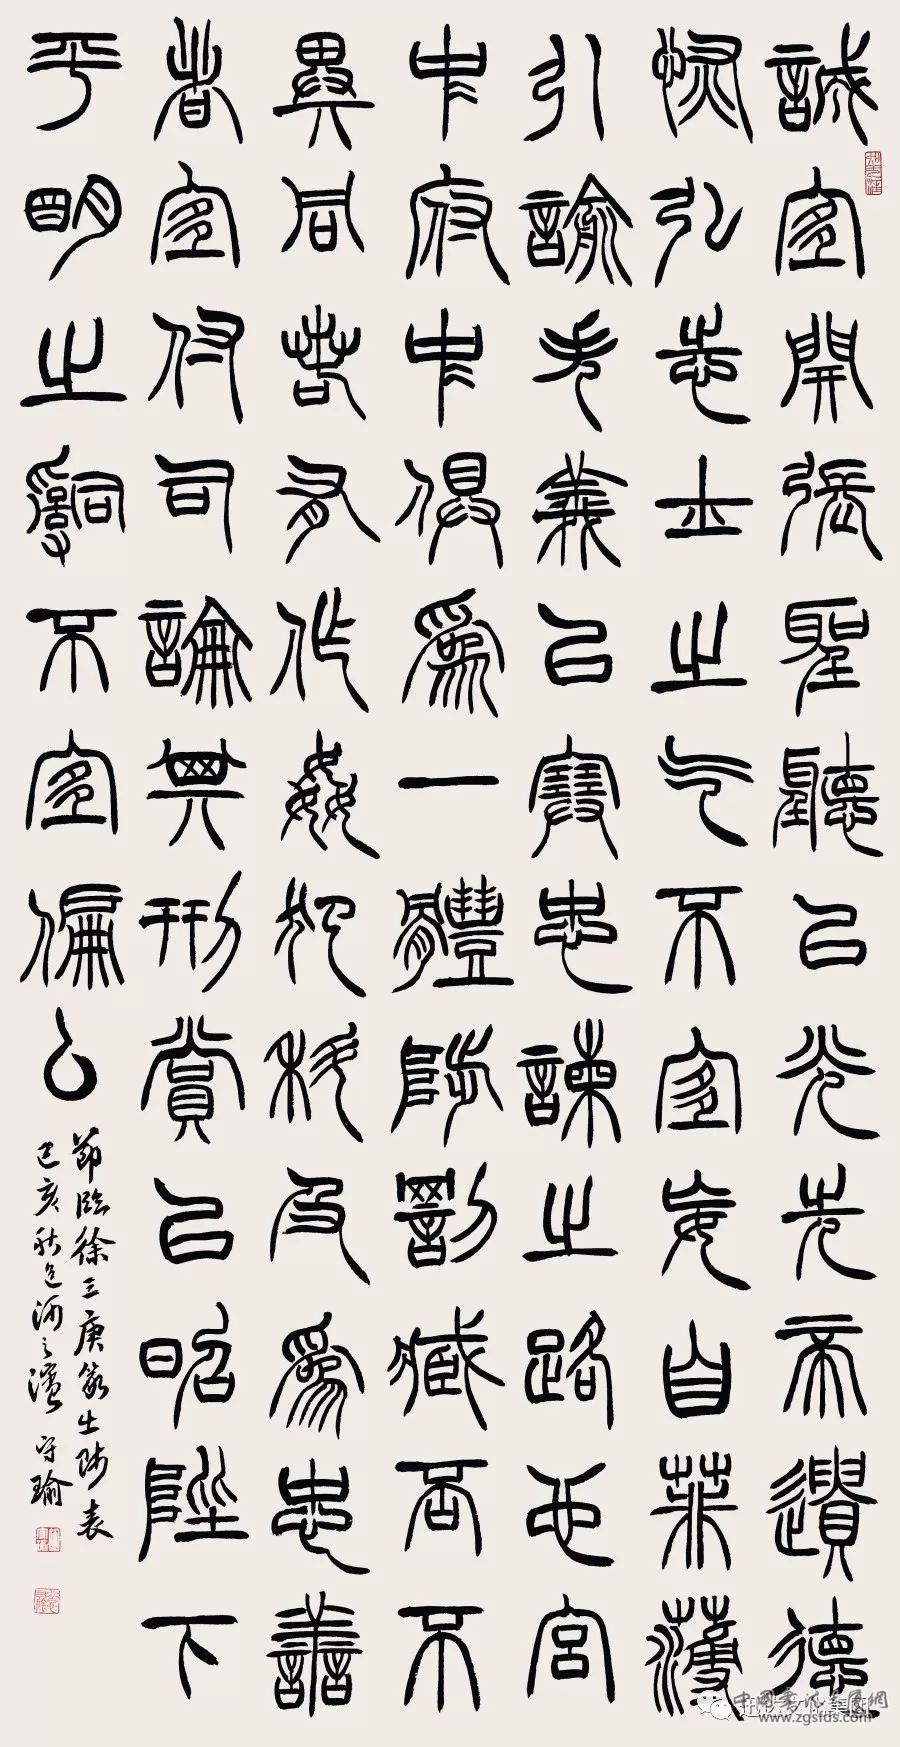 誠宜開張聖聽㠯光先帝遺德
恢弘志士之气不宜妄自菲薄
引諭失義㠯塞忠諫之路也宮
中府中俱爲一體陟罰臧否不
異同若有作姦犯科及爲忠善
者宜付司論其刑賞㠯昭陛下
平明之治不宜偏厶
節臨徐三庚篆出師表
己亥秋邑河之濱 守瑜
www.zgsfds.com